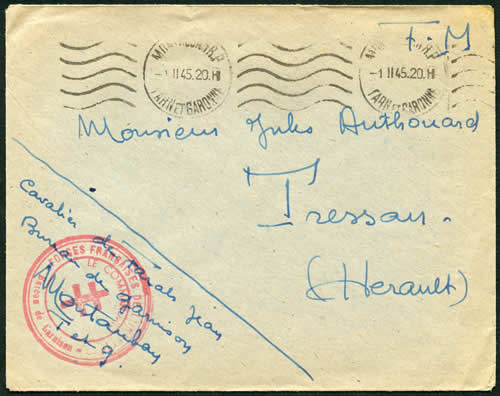 F.M
MONTAUBAN R.P
-1 II 45.20.H
TARN ET GARONNE
MONTAUBAN R.P
-1 II 45.20.H
TARN ET GARONNE
Monsieur Jules Authouard
Tressan.
(Herault)
Cavalier de Jean
Bureau de garnison
Montauban
T et g.
FORCES FRANÇAISES
LE COM
Garnison